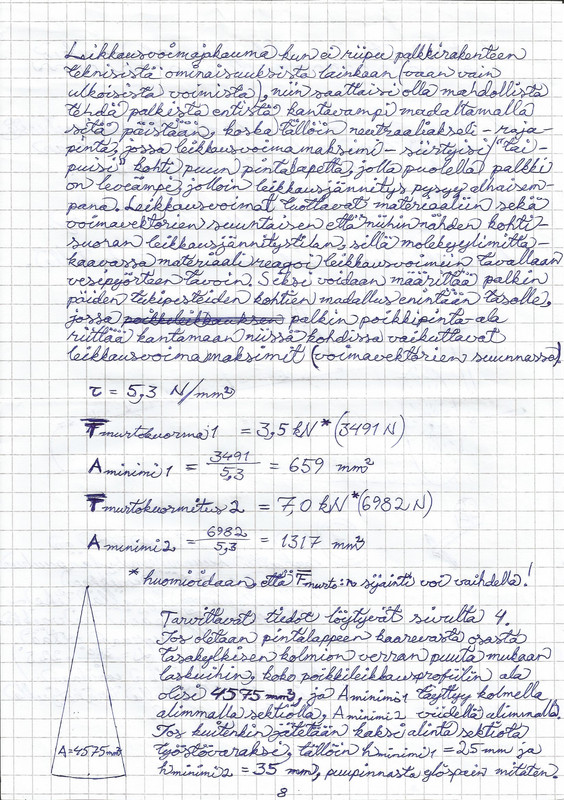 Leikkausvoimajakauma kun ei riipu palkkirakenteen
teknisistä ominaisuuksista lainkaan (vaan vain
ulkoisista voimista), niin saattaisi olla mahdollista
tehdä palkista entistä kantavampi madaltamalla
sitä päistään, koska tällöin neutraaliakseli - raja-
pinta, jossa leikkausvoimamaksimi - siirtyisi "tai-
puisi" kohti puun pintalapetta, jolla puolella palkki
on leveämpi, jolloin leikkausjännitys pysyy alhaisem-
pana. Leikkausvoimat tuottavat materiaaliin sekä
voimavektorien suuntaisen että niihin nähden kohti-
suoran leikkausjännitystilan, sillä molekyylimitta-
kaavassa materiaali reagoi leikkausvoimiin tavallaan
vesipyörteen tavoin. Siksi voidaan määrittää palkin
päiden tukipisteiden kohtien madallus enintään tasolle,
jossa palkin poikkipinta-ala
riittää kantamaan niissä kohdissa vaikuttavat
leikkausvoimamaksimit (voimavektorien suunnassa).
τ = 5,3 N/mm²
F murtokuorma 1 = 3,5 kN * (3491 N)
A minimi 1 = 3491/5,3 = 659 mm²
F murtokuormitus 2 = 7,0 kN * (6982 N)
A minimi 2 = 6982/5,3 = 1317 mm²
* huomioidaan, että F murto:n sijainti voi vaihdella!
Tarvittavat tiedot löytyvät sivulta 4.
Jos oletaan pintalappeen kaarevasta osasta
tasakylkisen kolmion verran puuta mukaan
laskuihin, koko poikkileikkausprofiilin ala
olisi 4575 mm², ja A minimi 1 täyttyy kolmella
alimmalla sektiolla, A minimi 2 viidellä alimmalla.
Jos kuitenkin jätetään kaksi alinta sektiota
työstövaraksi, tällöin h minimi 1 = 25 mm ja
A=4575mm²
h minimi 2 = 35 mm, puupinnasta ylöspäin mitaten.
8